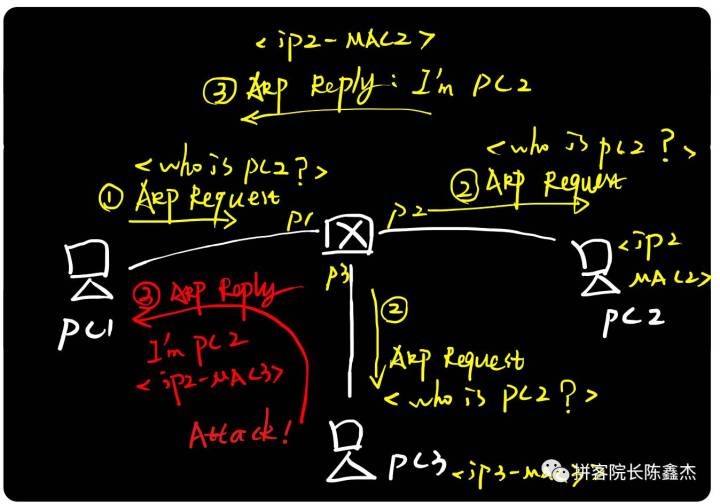 <ip2-MAC2>
③ ARP Reply: I'm PC2
<who is PC2?>
① ARP Request
<who is PC2?>
② ARP Request
P1
P2
P3
PC1
<ip2
MAC2>
PC2
③ ARP Reply
I'm PC2
<ip2-MAC3>
Attack!
②
ARP Request
<who is PC2?>
PC3
<ip3-MAC3>
拼客院长陈鑫杰